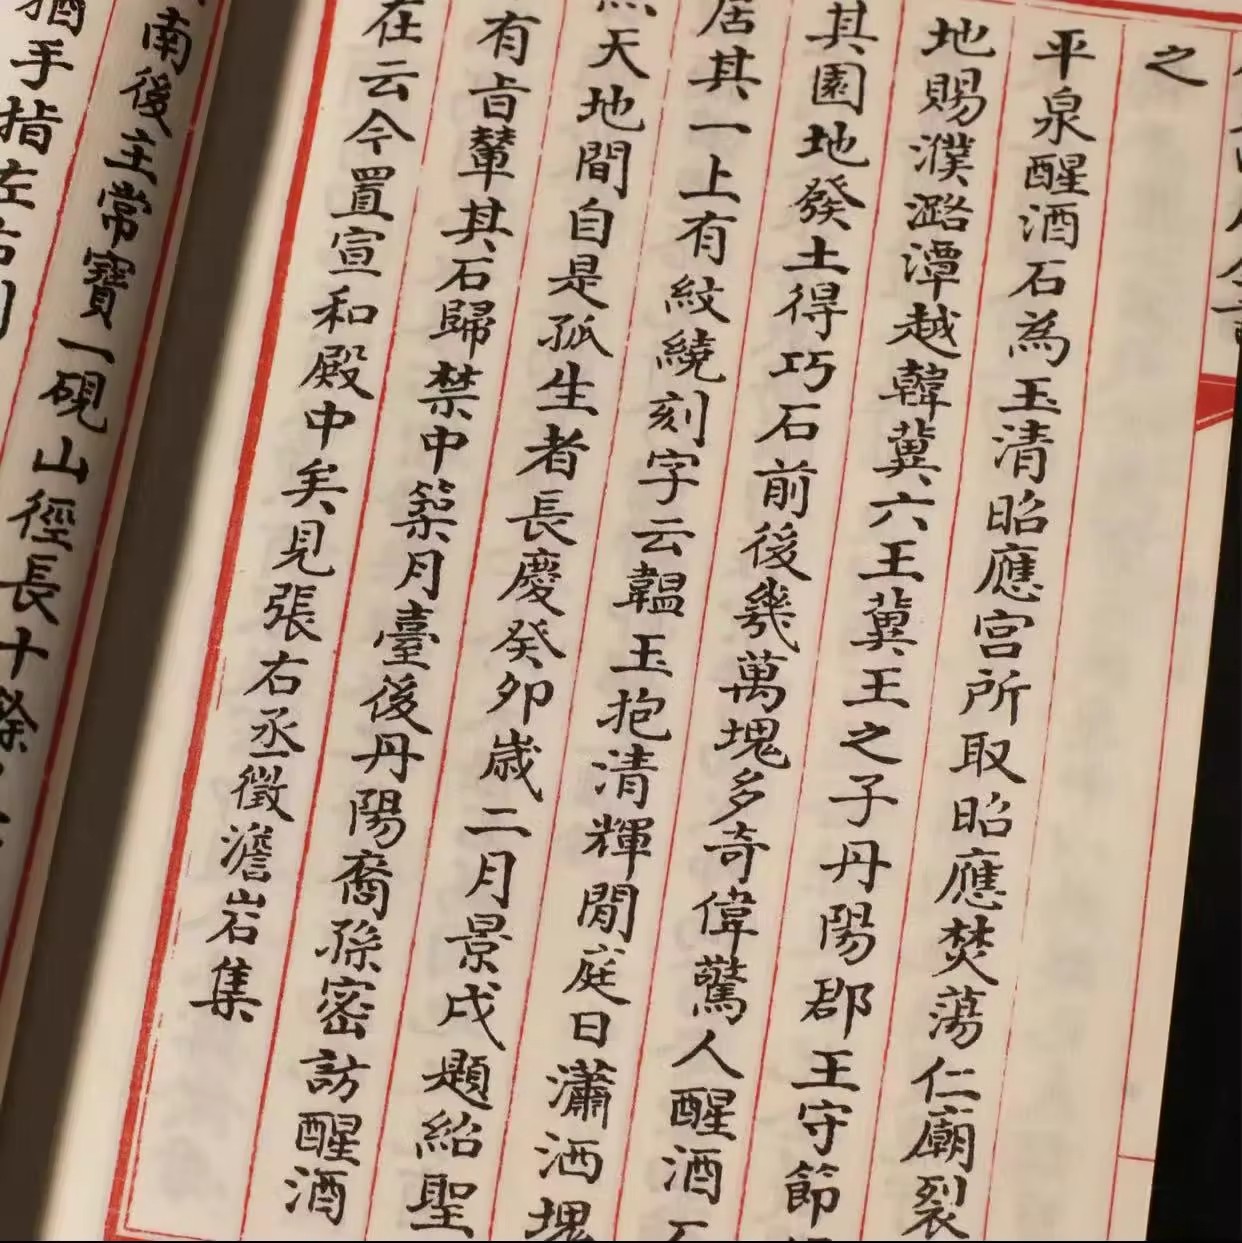 之
平泉醒酒石為玉清昭應宮所取昭應焚蕩仁廟裂
地賜濮潞潭越韓冀六王冀王之子丹陽郡王守節
其園地發土得巧石前後幾萬塊多奇偉驚人醒酒
居其一上有紋繞刻字云韞玉抱清輝閒庭日瀟洒塊
天地間自是孤生者長慶癸卯歲二月景戌題紹聖
有旨輦其石歸禁中築月臺後丹陽裔孫密訪醒酒
在云今置宣和殿中矣見張右丞徵澹岩集
南後主常寶一硯山徑長十餘
手指左右